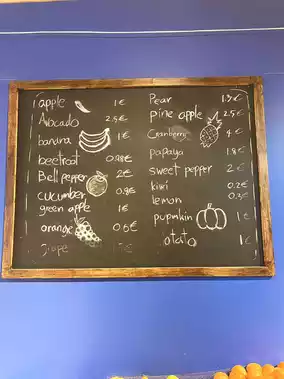 apple 1€
Avocado 2.5€
banana 1€
beetroot 0.98€
Bell pepper 2€
cucumber 0.9€
green apple 1€
orange 0.5€
grape
Pear 1.5€
pine apple 2.5€
Cranberry 4€
papaya 1.8€
sweet pepper 2€
kiwi 0.2€
lemon 0.3€
pupmkin 1€
otato 1€